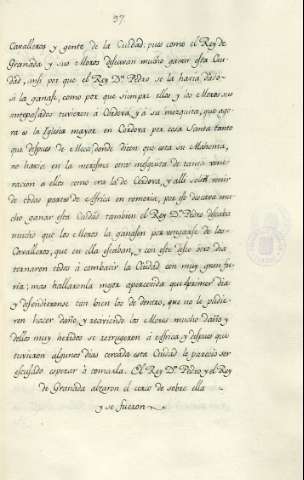 37
Caualleros y gente de la Ciudad, pues como el Rey de
Granada y sus Moros deseauan mucho ganar esta Ciu-
dad, assi por que el Rey Dn. Pedro se la hauia dado
si la ganase, como por que siempre ellos y los Moros sus
antepasados tuvieron à Cordova, y à su mezquita, que ago-
ra es la Iglesia mayor en Cordova por cosa Santa tanto
que despues de Meca, donde dicen que està su Mahoma,
no hauia en la morisma otra mezquita de tanta vene-
racion a ellos como era la de Cordova, y alli solian venir
de todas partes de Africa en romeria, por esto deseava mu-
cho ganar esta Ciudad tambien el Rey Dn. Pedro deseaba
mucho que los Moros la ganasen por vengarse de los
Caualleros, que en ella estaban, y con este deseo otro dia
tornaron todos à combatir la Ciudad con muy gran fu-
ria; mas hallaronla mejor apercevida que el primer dia
y defendieronse tan bien los de dentro, que no le pudie-
ron hacer daño, y reciviendo los Moros mucho daño y
dellos muy heridos se
tuvieron algunos dias cercada esta Ciudad le parecio ser
escusado esperar à tomarla. El Rey Dn. Pedro y el Rey
de Granada alzaron el cerco de sobre ella
y se fueron